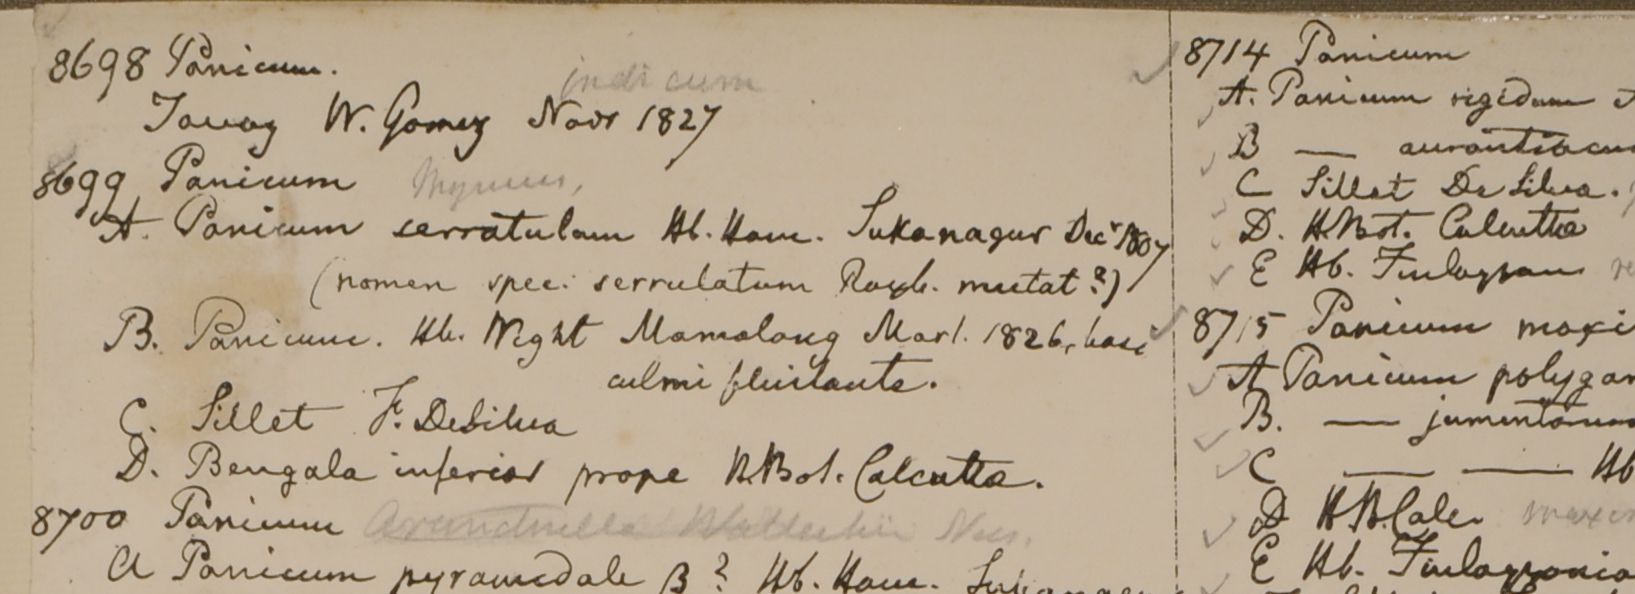 8698 Panicum. indicum
Tavoy W. Gomez Novr 1827
8699 Panicum
A. Panicum serratulum Hb. Ham. Sukanagur Decr 1807
(nomen spec: serrulatum Roxb. mutat?)
B. Panicum. Hb. Wight Mamalang Mart. 1826, basi
culmi fluitante.
C. Sillet F. De Silva
D. Bengala inferior prope H. Bot. Calcutta.
8700 Panicum Arundinella Wallichii Nees.
A Panicum pyramidale B? Hb. Ham.
8714 Panicum
A. Panicum rigidum
B — aurantiacum
C Sillet De Silva.
D. H. Bot. Calcutta
E Hb. Finlayson
8715 Panicum maxi
A Panicum polygam
B. — jumentorum
C — — Hb
D H.B. Calc.
E Hb. Finlaysonia